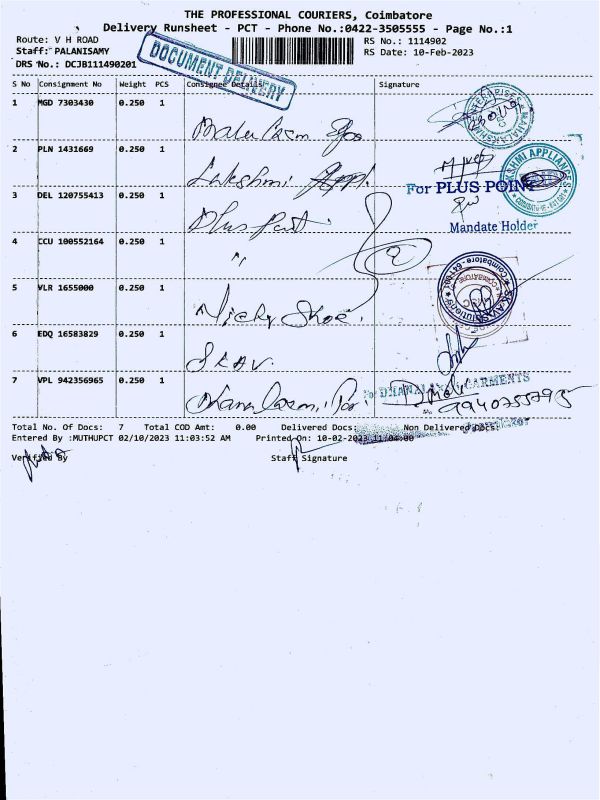 THE PROFESSIONAL COURIERS, Coimbatore
Delivery Runsheet - PCT - Phone No.:0422-3505555 - Page No.:1
Route: V H ROAD
RS No.: 1114902
Staff: PALANISAMY
RS Date: 10-Feb-2023
DRS No.: DCJB111490201
DOCUMENT DELIVERY
S No Consignment No Weight PCS Consignee Details Signature
1 MGD 7303430 0.250 1
2 PLN 1431669 0.250 1 Lakshmi App.
APPLIANCES
For PLUS POINT
3 DEL 120755413 0.250 1 Plus Point
Mandate Holder
4 CCU 100552164 0.250 1 "
2
5 VLR 1655000 0.250 1 Nicky Shoe.
6 EDQ 16583829 0.250 1 SKAV.
7 VPL 942356965 0.250 1
For DHANALAXMI GARMENTS
9940755795
Total No. Of Docs: 7 Total COD Amt: 0.00 Delivered Docs: Non Delivered Docs:
Entered By :MUTHUPCT 02/10/2023 11:03:52 AM Printed On: 10-02-2023 11:04:00
Verified By Staff Signature